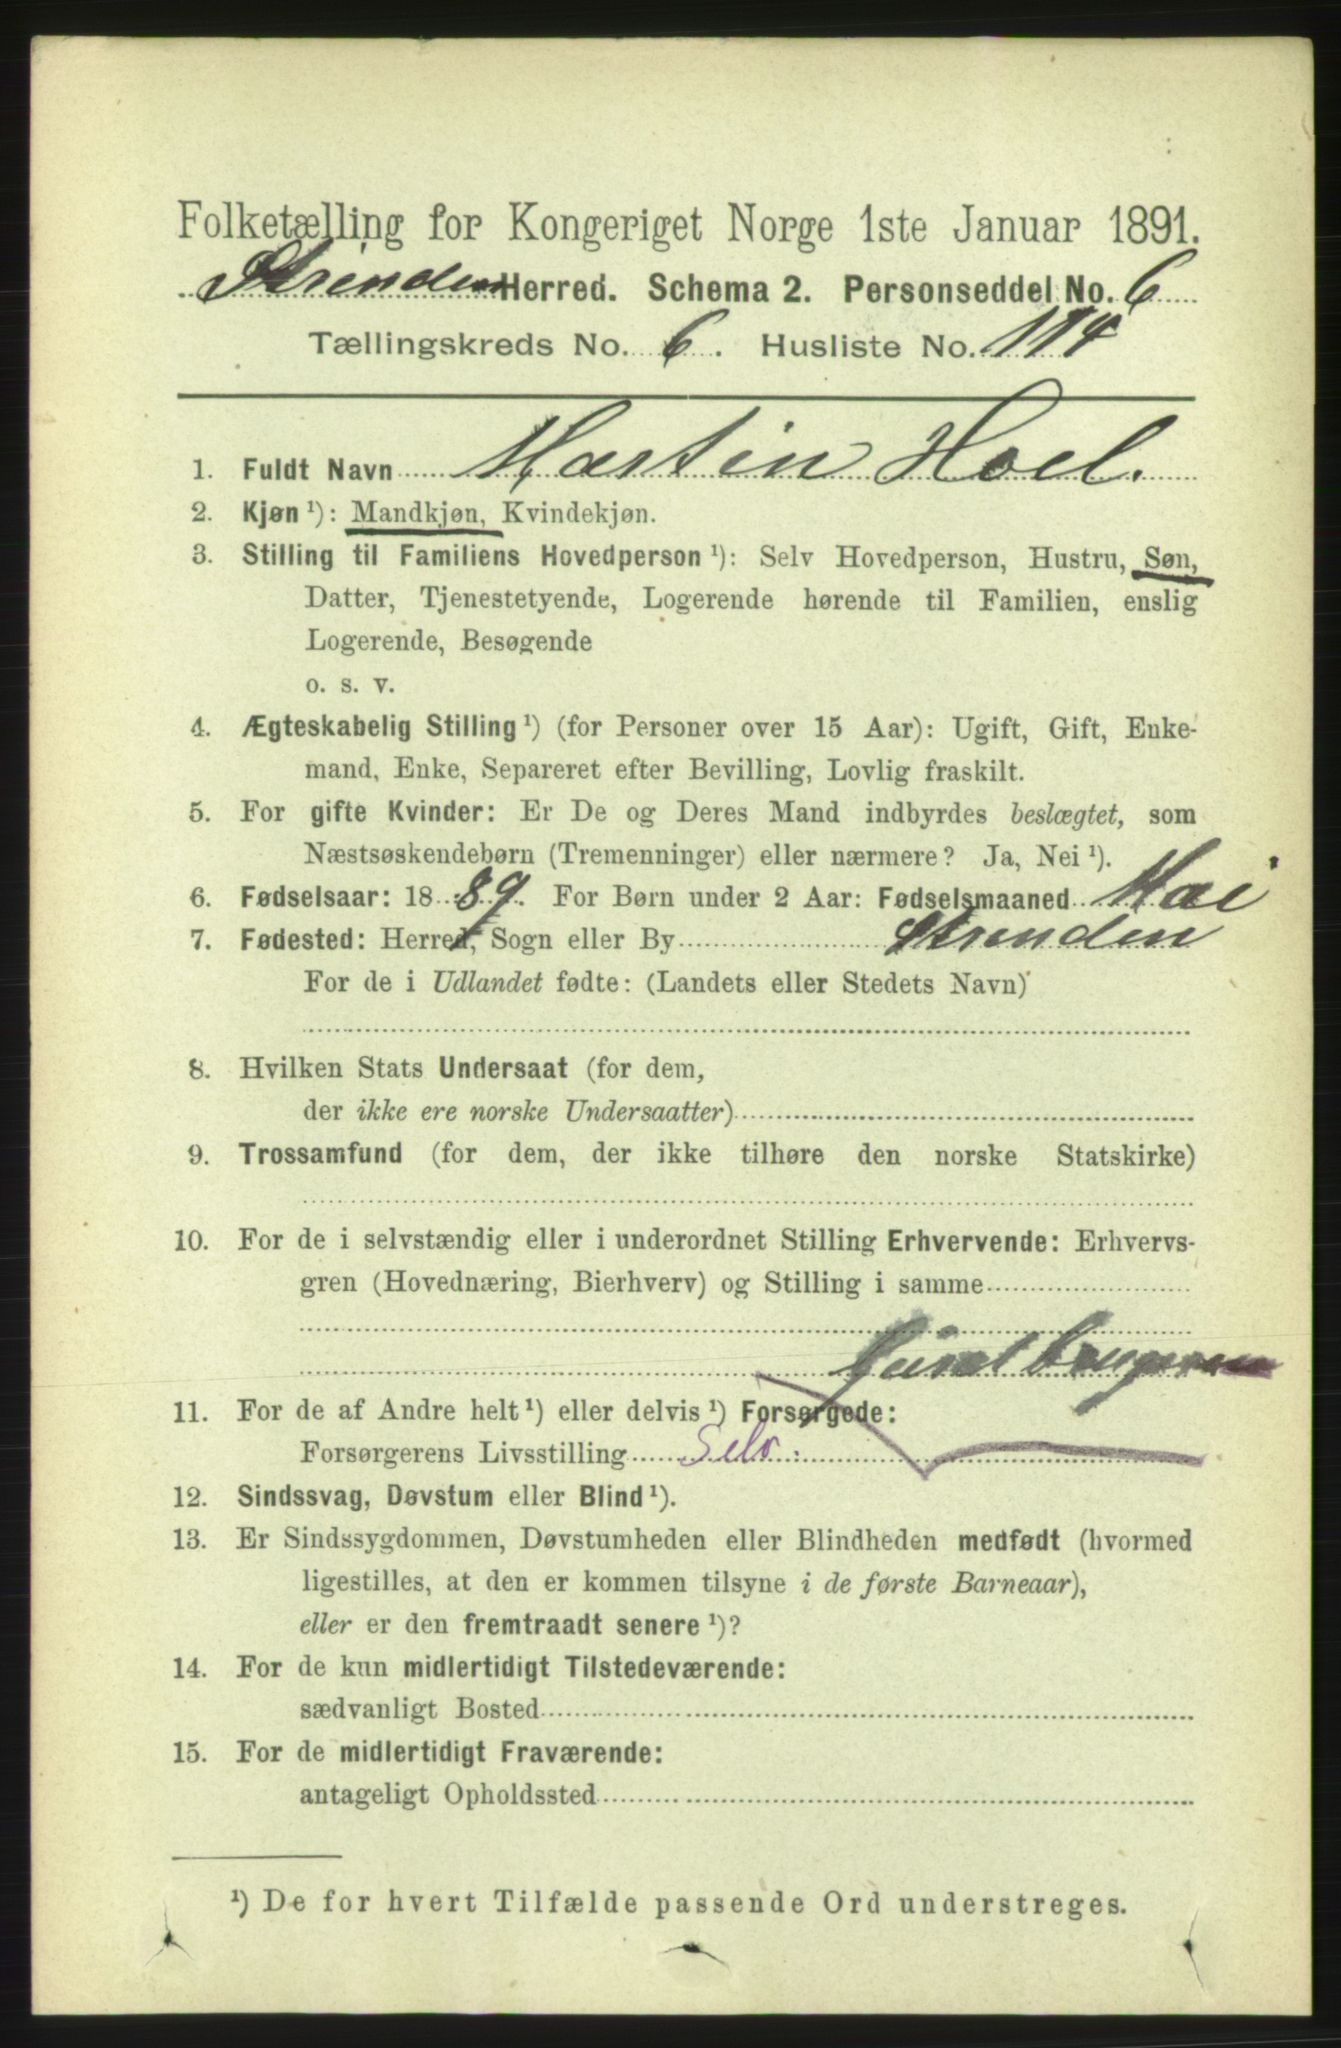 Folketælling for Kongeriget Norge 1ste Januar 1891.
Strinden Herred. Schema 2. Personseddel No. 6
Tællingskreds No. 6. Husliste No. 114
1. Fuldt Navn Martin Hoel.
2. Kjøn ¹): Mandkjøn, Kvindekjøn.
3. Stilling til Familiens Hovedperson ¹): Selv Hovedperson, Hustru, Søn,
Datter, Tjenestetyende, Logerende hørende til Familien, enslig
Logerende, Besøgende
o. s. v.
4. Ægteskabelig Stilling ¹) (for Personer over 15 Aar): Ugift, Gift, Enke-
mand, Enke, Separeret efter Bevilling, Lovlig fraskilt.
5. For gifte Kvinder: Er De og Deres Mand indbyrdes beslægtet, som
Næstsøskendebørn (Tremenninger) eller nærmere? Ja, Nei ¹).
6. Fødselsaar: 18 89. For Børn under 2 Aar: Fødselsmaaned Mai
7. Fødested: Herred, Sogn eller By Strinden
For de i Udlandet fødte: (Landets eller Stedets Navn)
8. Hvilken Stats Undersaat (for dem,
der ikke ere norske Undersaatter)
9. Trossamfund (for dem, der ikke tilhøre den norske Statskirke)
10. For de i selvstændig eller i underordnet Stilling Erhvervende: Erhvervs-
gren (Hovednæring, Bierhverv) og Stilling i samme
11. For de af Andre helt ¹) eller delvis ¹) Forsørgede:
Forsørgerens Livsstilling
12. Sindssvag, Døvstum eller Blind ¹).
13. Er Sindssygdommen, Døvstumheden eller Blindheden medfødt (hvormed
ligestilles, at den er kommen tilsyne i de første Barneaar),
eller er den fremtraadt senere ¹)?
14. For de kun midlertidigt Tilstedeværende:
sædvanligt Bosted
15. For de midlertidigt Fraværende:
antageligt Opholdssted
¹) De for hvert Tilfælde passende Ord understreges.